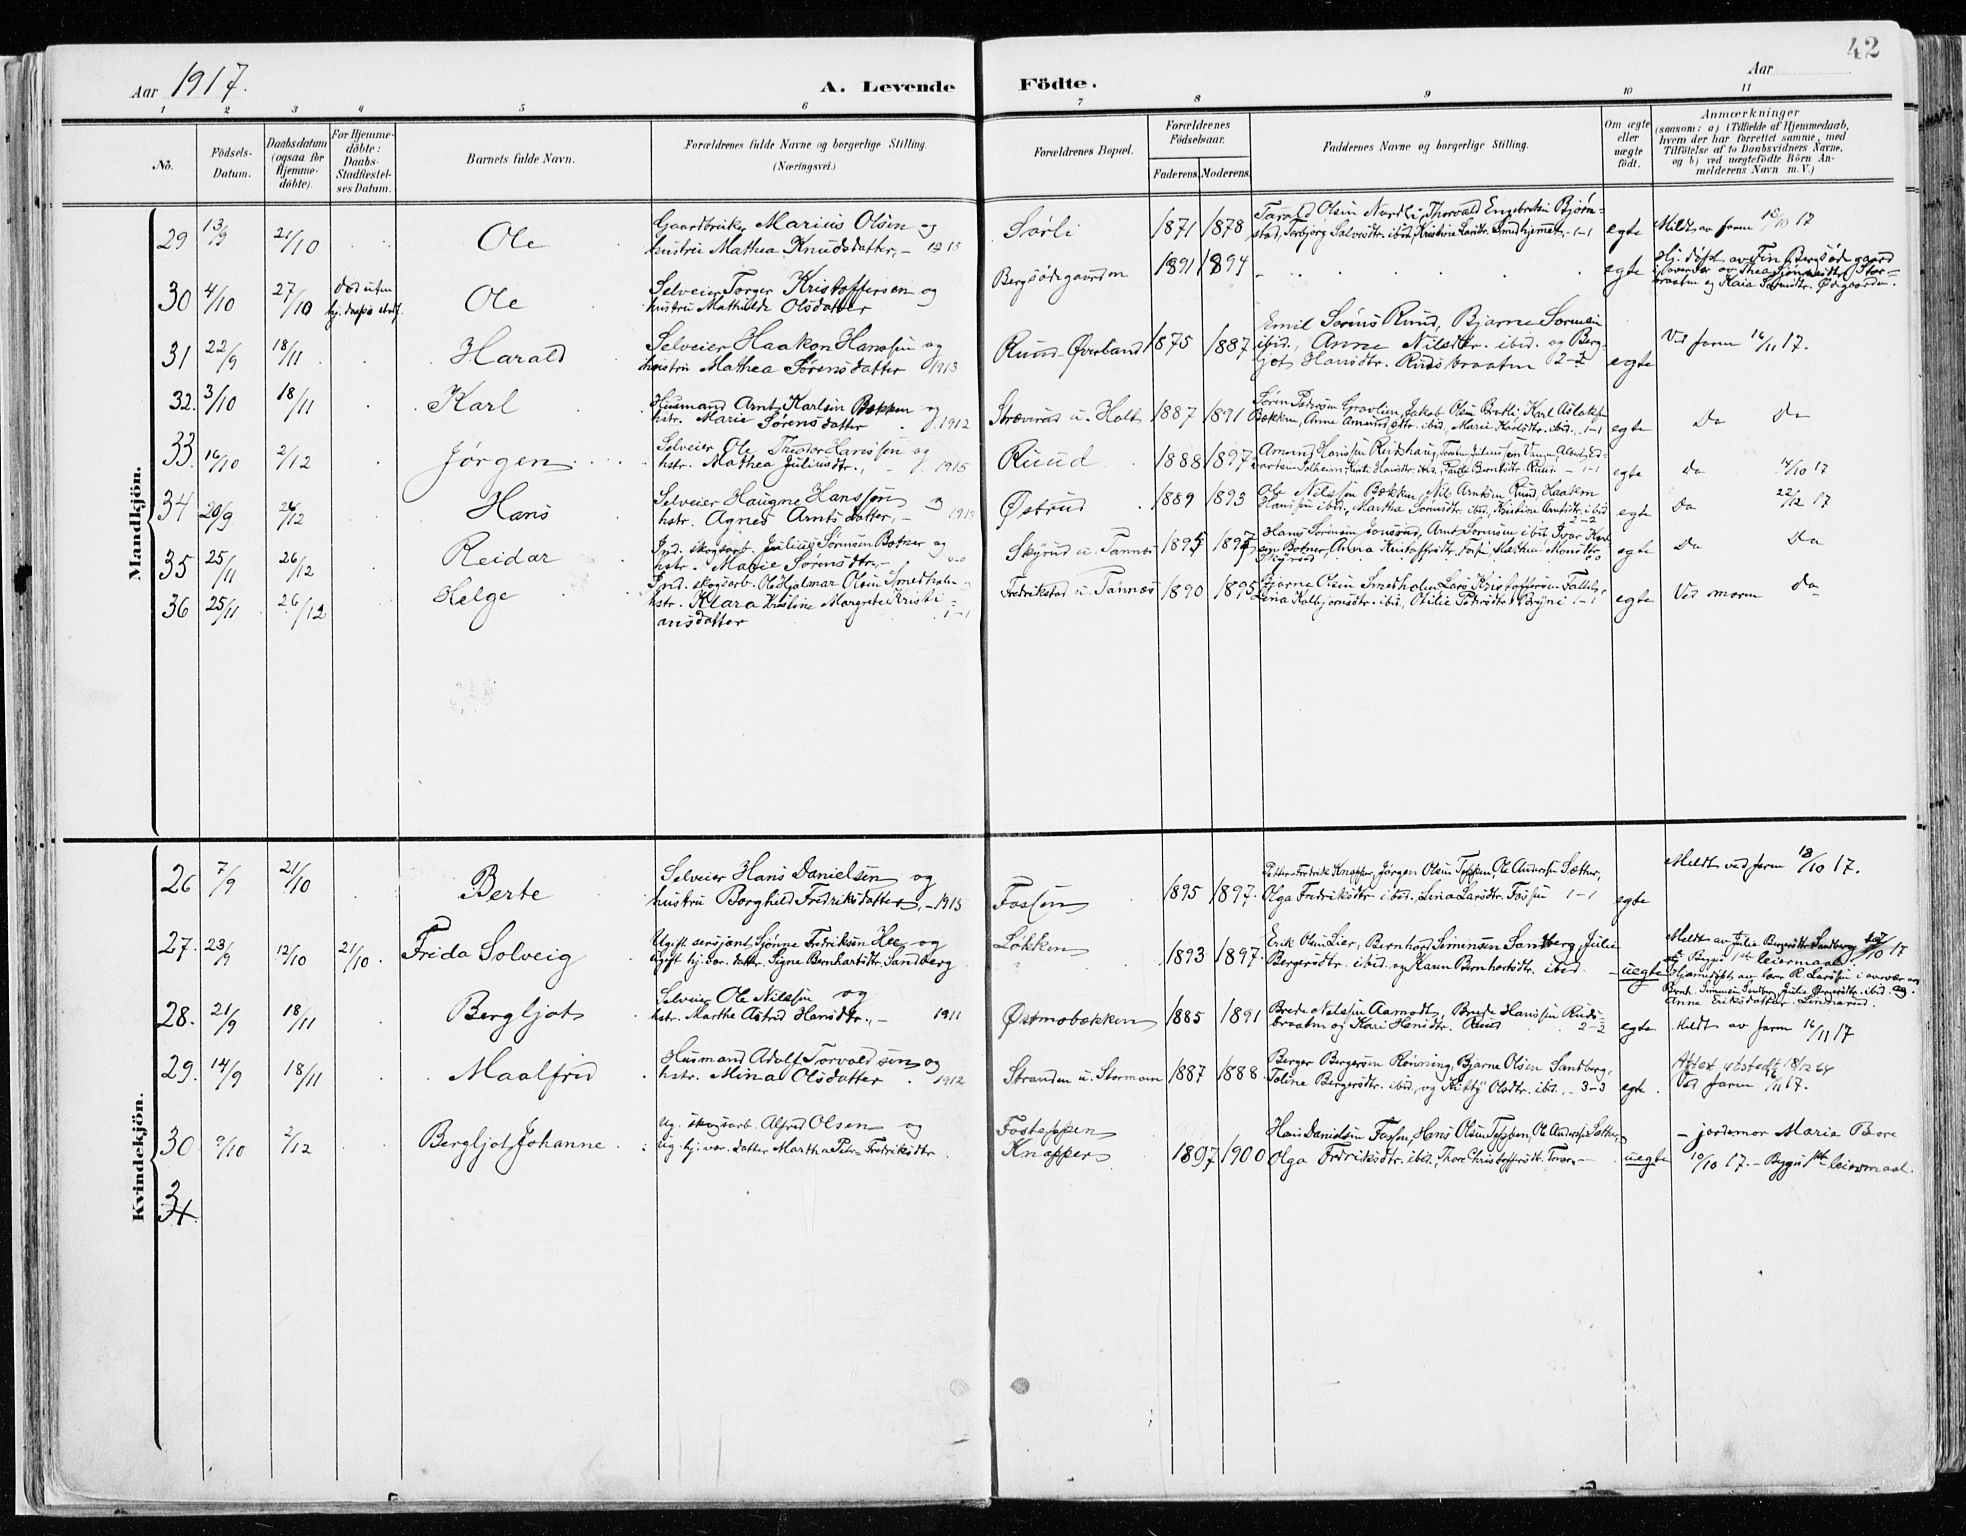 42
Aar 1917.
A. Levende Födte.
Aar
1 2 3 4 5 6 7 8 9 10 11
No.
Födsels-
Datum.
Daabsdatum
(ogsaa for
Hjemme-
döbte).
For Hjemme-
döbte:
Daabs-
Stadfæstel-
ses Datum.
Barnets fulde Navn.
Forældrenes fulde Navne og borgerlige Stilling.
(Næringsvei.)
Forældrenes Bopæl.
Forældrenes
Födselsaar.
Faderens. Moderens.
Faddernes Navne og borgerlige Stilling.
Om ægte
eller
uægte
födt.
Anmærkninger
(saasom: a) i Tilfælde af Hjemmedaab,
hvem der har forrettet samme, med
Tilföielse af to Daabsvidners Navne,
og b) ved uægtefödte Börn An-
melderens Navn m. V.)
Mandkjön.
29 13/9 21/10 Ole
Gaardbruker Marius Olsen og
hustru Mathea Knudsdatter, - 1915
Sørli 1871 1878
Tarald Olsen Nordli, Thorvald Engebretsen Bjørn-
stad, Torbjørg Salvesdtr. ibid, Kristine Larsdtr. Smedhjemmet, - 1-1
egte Meldt av farm 18/10 17
30 4/10 27/10 død uten
hj. daaps stadf.
Ole
Selveier Torger Kristoffersen og
hustru Mathilde Olsdatter
Bergsødegaarden 1891 1894
egte Hj. døpt av Fin Bergsødegaard
i overvær av Thea
braaten og Kaia Ødegaarden.
31 22/9 18/11 Harald
Selveier Haakon Hanssen og
hustru Mathea Sørensdatter 1913
Ruud-Øverland 1875 1887
Emil Sørens Ruud, Bjarne Sørensen
ibid., Anne Nilsdtr. ibid. og Berg-
ljot Hansdtr. Rudsbraaten 2-2
egte Ved farm 16/11 17.
32. 3/10 18/11 Karl
Husmand Arnt Karlsen Bækken og
hstr. Marie Sørensdatter 1912
u. Holt 1887 1891
Søren Pedersen Gravlien, Jakob Olsen Bratli, Karl Aslaksen
Bækken, Anne Amundsdtr. ibid., Marie Karlsdtr. ibid., 1-1
egte Do Do
33. 16/10 2/12 Jørgen
Selveier Ole Theodor Hanssen og
hstr. Mathea Juliusdtr., 1915
Ruud 1888 1897
Amund Hanssen Rudshaug,
Solheim, Hansdtr. ibid., Paula Berntsdtr. Ruud - 1-1
egte do 17
34 20/9 26/12 Hans
Selveier Haugne Hanssøn
hstr. Agnes Arntsdatter, - 1913
Østrud 1889 1893
Ole Nilssen Bækken, Nils Arntsen Ruud, Haakon
Hanssen ibid., Martha Sørensdtr. ibid., Kristine Arntsdtr. ibid
2-2
egte Do 22/12 17
35 25/11 26/12 Reidar
Ind. skogsarb. Julius Sørensen Botner og
hstr. Marie Sørensdtr., - 0-0
Skyrud u. Tannæs 1895 1897
Hans Sørensen Jonsrud, Arnt Sørensen ibid, Ivar Karl-
sen Botner, Anna Kristoffersdtr. Mathea Monsdtr.
Skyrud 0-0
egte Do Do
36 25/11 26/12 Helge
Ind. skogsarb. Ole Hjalmar Olsen Smedhalen og
hstr. Klara Kristine Margrete Kristi-
ansdatter 1-1
Fredrikstad u. Tannæs 1890 1895
Bjarne Olsen Smedholen, Lars Kristoffersen
Lina Kolbjørnsdtr. ibid., Otilie Pedersdtr. Bryni 1-1
egte Ved moren Do
Kvindekjön.
26 7/9 21/10 Berte
Selveier Hans Danielsen og
hustru Borghild Fredriksdatter, - 1915
Fossen 1895 1897.
Petter Fredrik Knapper, Jørgen Olsen Teppen, Ole Andersen Sætter,
Olga Fredriksdtr. ibid., Lina Larsdtr. Fossen 1-1
egte Meldt ved farm 18/10 17.
27. 23/9 12/10 21/10. Frida Solveig
Ugift sersjant Sjønne Fredriksen Hee og
ugift hj. vær. datter Signe Bernhartsdtr. Sandberg
Løkken 1893 1897.
Erik Olsen Lier, Bernhard Simensen Sandberg, Julie
Bergersdtr. ibid. og Karen Bernhartsdtr. ibid.
uegte
Meldt av Julie Bergersdtr. Sandberg 10 17
Begges 1ste leiermaal.
Hjemmedøpt av lærer R. Larssen i overvær av
Brede Simensen Sandberg, Julie Bergersdtr. ibid. og
Anne Eriksdatter Linnerud.
28. 21/9 18/11 Bergljot
Selveier Ole Nilssen og
hstr. Marthe Astrid Hansdtr., - 1911
Østmobækken 1885 1891
Brede Nilssen Aamodt, Brede Hanssen Ruds-
braaten og Kari Hansdtr. Ruud 2-2
egte Meldt av farm 16/11 17
29. 14/9 18/11 Maalfrid
Husmand Adolf Torvaldsen og
hstr. Mina Olsdatter 1912
Stranden u. Stormoen 1887 1888
Berger Bergersen Rønning, Bjarne Olsen Sandberg,
Taline Bergersdtr. ibid., og Kitty Olsdtr. ibid., - 3-3
egte.
Attest utstedt 18/12 64
Ved farm 16/11 17.
30 9/10 2/12 Bergljot Johanne
Ug. skogsarb. Alfred Olsen og
ug. hj. vær. datter Martha Petra Fredriksdtr.
Fosteppen
Knapper 1897 1900
Hans Danielsen Fossen, Hans Olsen Teppen, Ole Andersen Sætter,
Olga Fredriksdtr. ibid., Thora Christoffersdtr.
uegte
- jordemor Marie Bore
10/10 17. - Begges 1ste leiermaal.